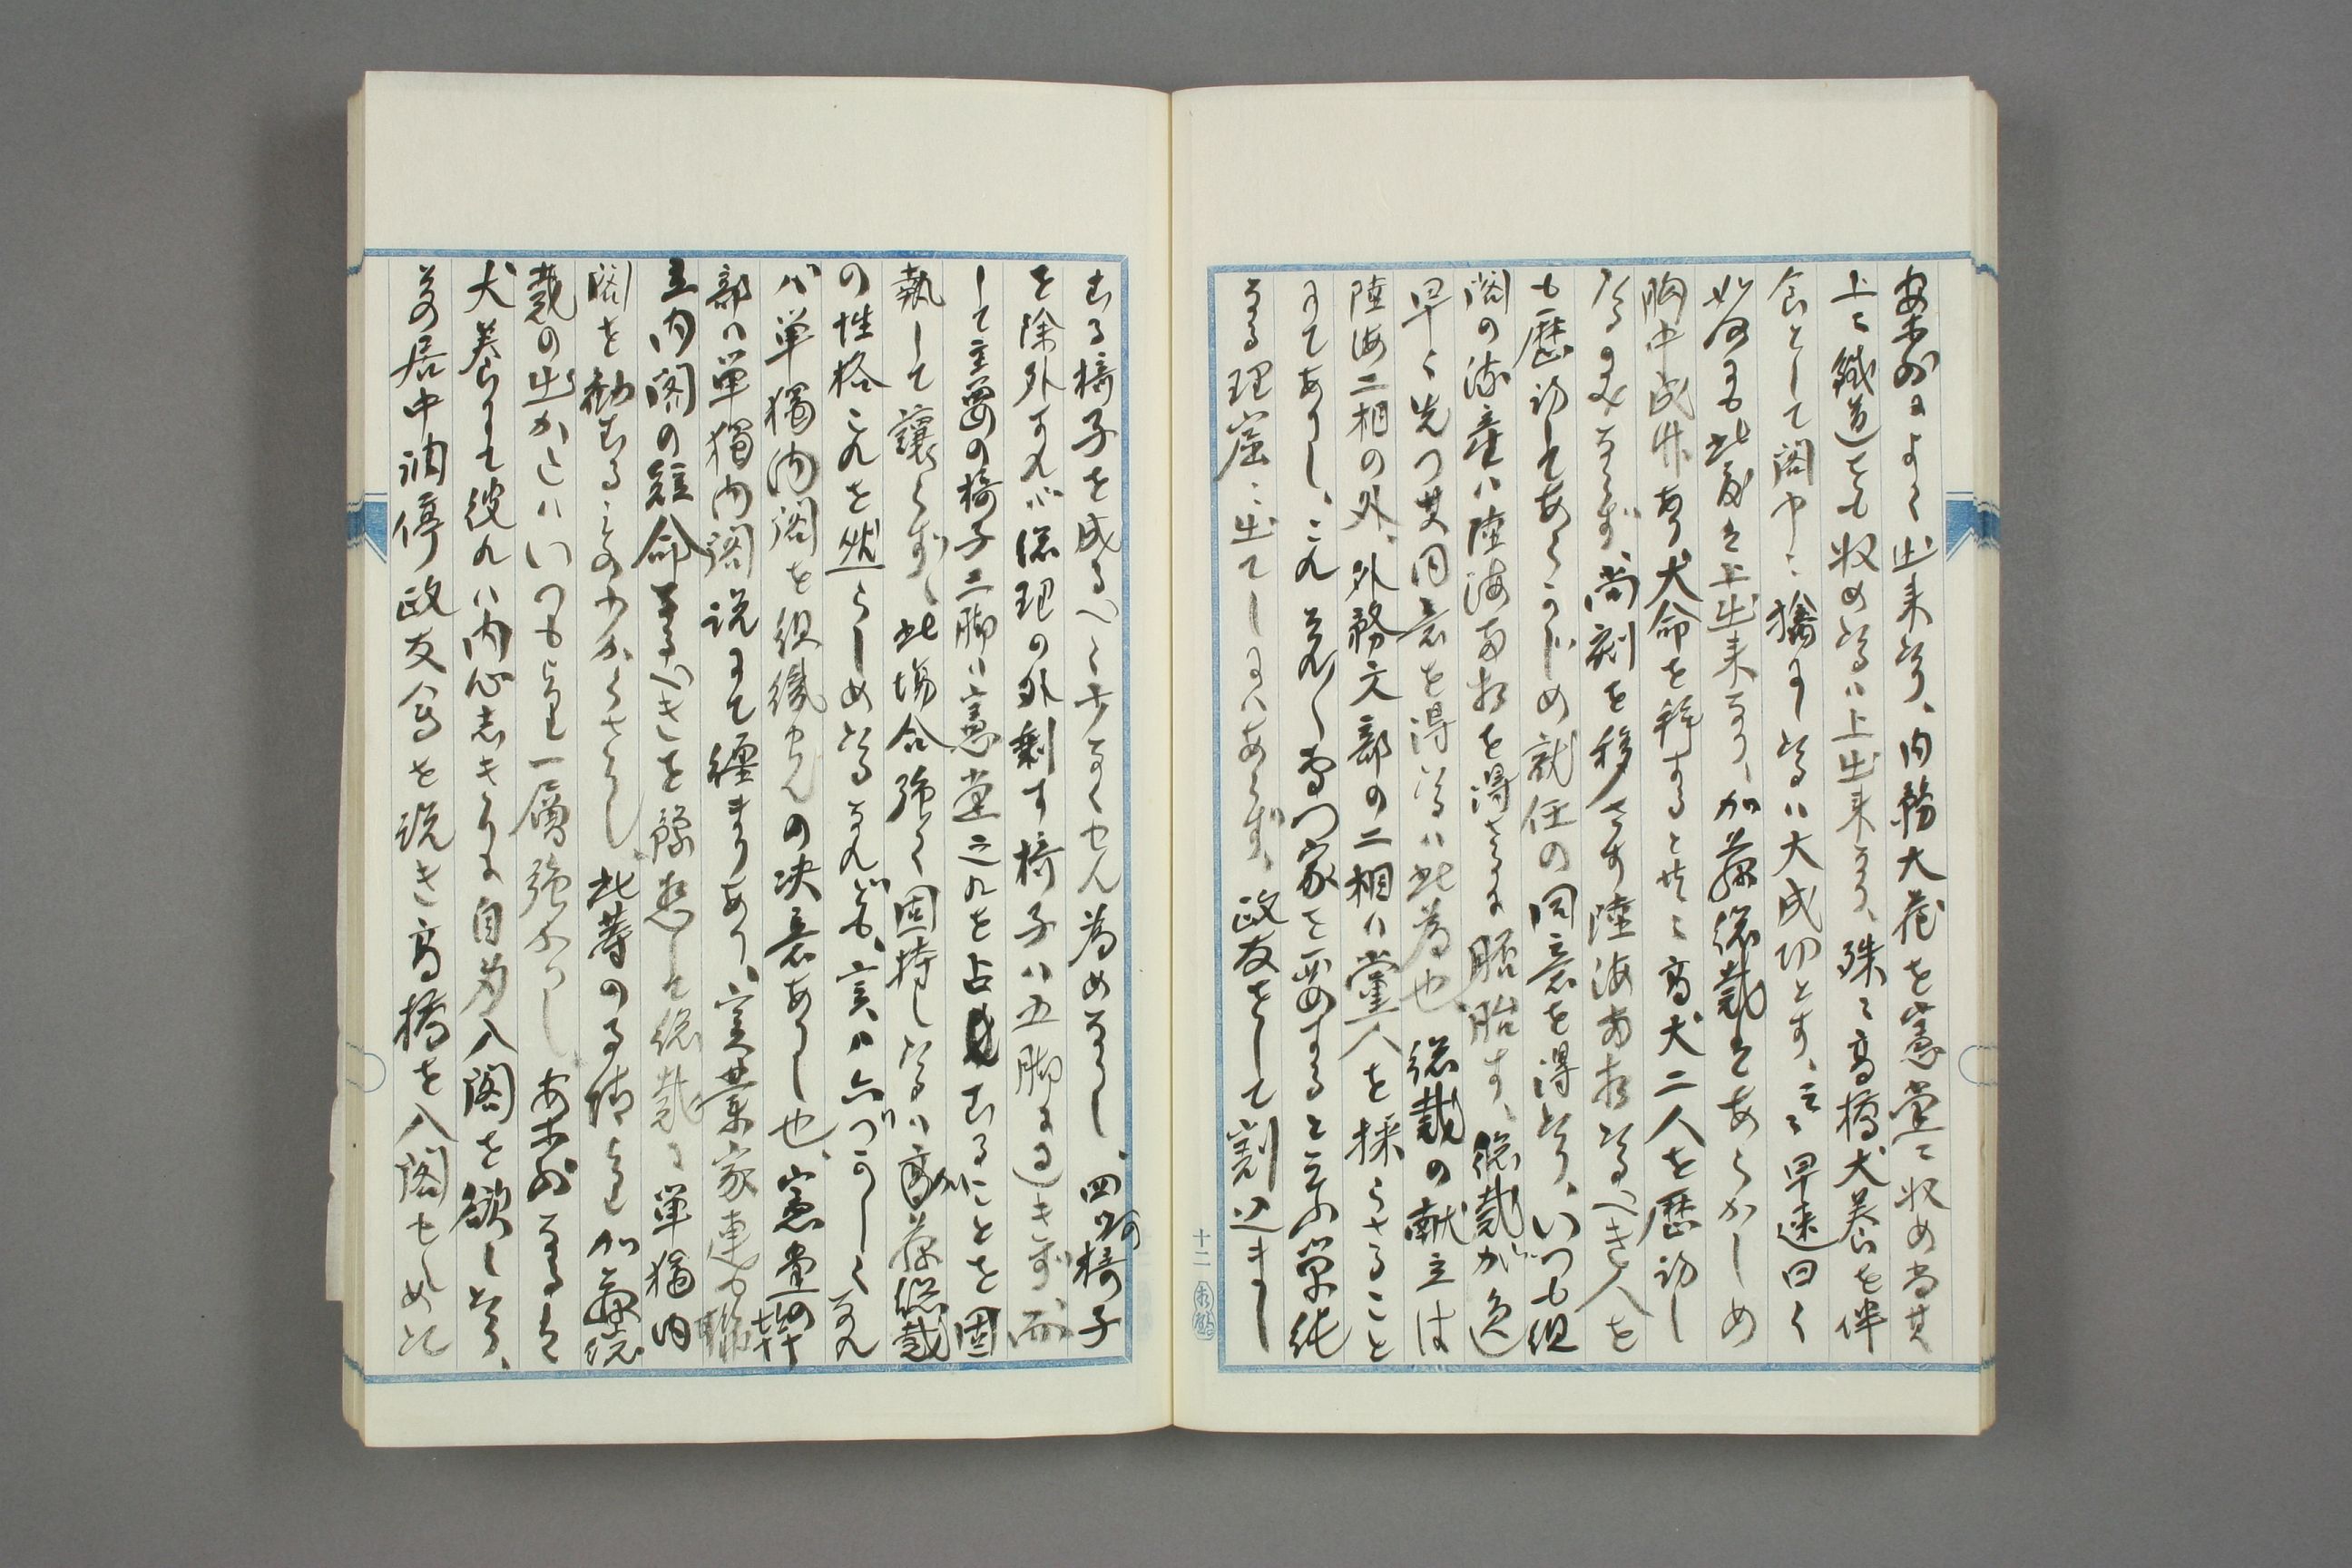 案外によく出来たり、内務大蔵を憲党に収め尚其
上に鉄道をも収めたるは上出来なり、殊に高橋犬養を伴
食として閣中に擒にしたるは大成功とす、言下早速曰く
如何にも此度は上出来なり、加藤総裁はあらかしめ
胸中成竹あり大命を拝すると共に高犬二人を歴訪し
たるのみならず、尚刻を移さす陸海両相たるへき人を
も歴訪してあらかじめ就任の同意を得たり、いつも組
閣の流産は陸海両相を得さるに胚胎す、総裁が逸
早く先つ其同意を得たるは此為也、総裁の献立は
陸海二相の外、外務文部の二相は党人を採らさること
にてありし、これ夫々専門家を要すると云ふ単純
なる理窟に出てしにはあらず、政友をして割込まし
むる椅子を成るへく少なくせん為めなりし、四個の椅子
を除外すれば総理の外剰す椅子は五脚に過きず、而
して主要の椅子二脚は憲党之れを占むることを固
執して譲らず、此場合強く固持したるは加藤総裁
の性格これを然らしめたるなれども、実は六づかしくなれ
ば単独内閣を組織せんの決意ありし也、憲党の幹
部は単独内閣説にて纏まりあり、実業家連も聯
立内閣の短命なるへきを豫想して総裁に単独内
閣を勧むるもの少からさりし、此等の事情よりも加藤総
裁の出かたはいつもより一層強かりし、案外なるは
犬養にて彼れは内心しきりに自ら入閣を欲したり、
其居中調停政友会を説き高橋を入閣せしめんと